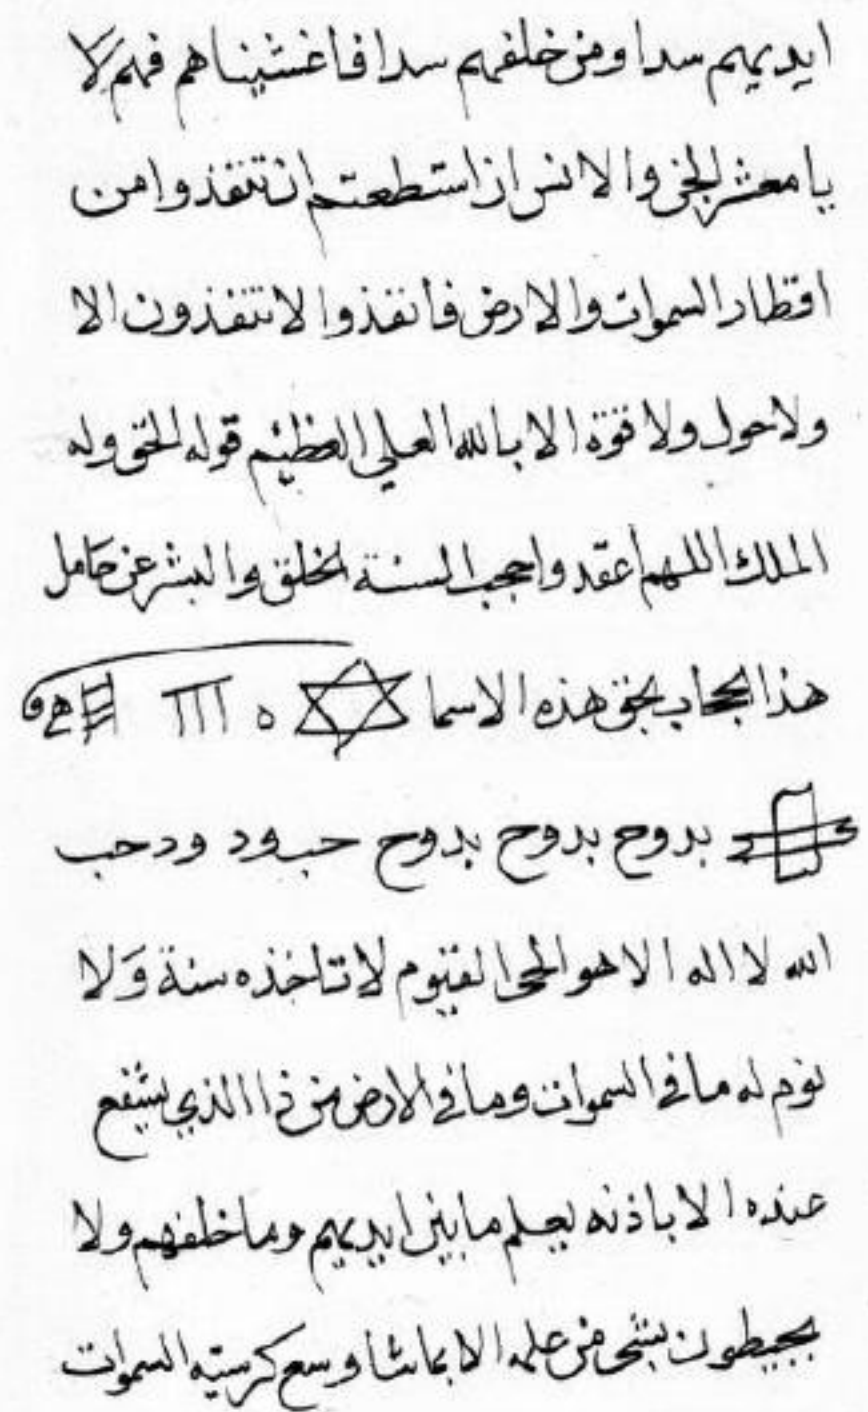 ايديهم سدا ومن خلفهم سدا فاغشيناهم فهم لا
يا معشر الجن والانس ان استطعتم ان تنفذوا من
اقطار السموات والارض فانفذوا لا تنفذون الا
ولا حول ولا قوة الا بالله العلي العظيم قوله الحق وله
الملك اللهم اعقد واحجب السنة الخلق والبشر عن حامل
هذا الحجاب بحق هذه الاسما
بدوح بدوح بدوح حبود ودحب
الله لا اله الا هو الحي القيوم لا تاخذه سنة وَلا
نوم له ما في السموات وما في الارض من ذا الذي يشفع
عنده الا باذنه يعلم ما بين ايديهم وما خلفهم ولا
يحيطون بشى من علمه الا بما شا وسع كرسيه السموات